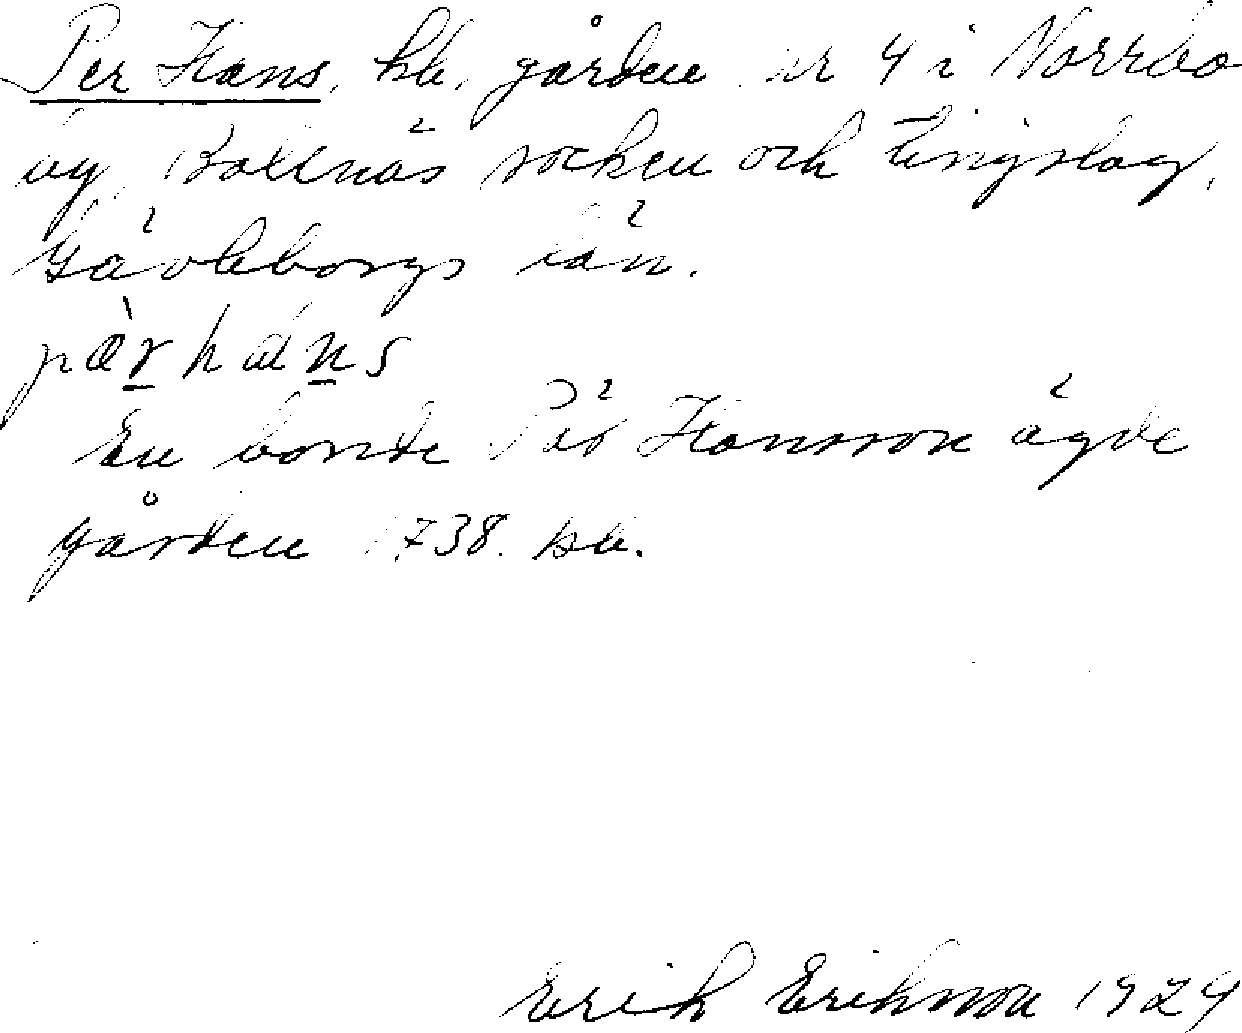 Per Hans, kb, gården nr 4 i Norrbo
by, Bollnäs socken och tingslag,
Gävleborgs län.
pæ̀rhans
En bonde Pär Hansson ägde
gården 1738. kb.
Erik Eriksson 1924